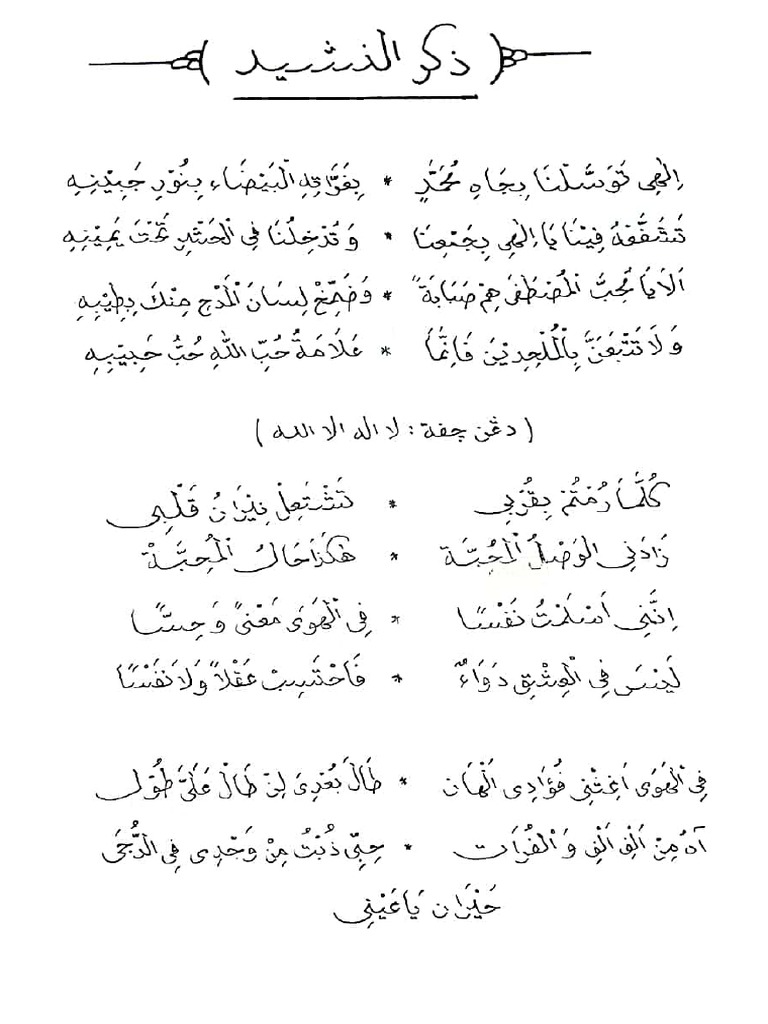 ذكر النشيد
اِلٰهِي تَوَسَّلْنَا بِجَاهِ مُحَمَّدٍ * بِغَرَّاتِهِ الْبَيْضَاءِ بِنُوْرِ جَبِيْنِهِ
تَشَفَّعْهُ فِيْنَا يَا اِلٰهِي بِجَمْعِنَا * وَتُدْخِلُنَا فِي الْحَشْرِ تَحْتَ يَمِيْنِهِ
اَلَا يَا مُحِبَّ الْمُصْطَفَى هِمْ صَبَابَةً * وَضَمِّخْ لِسَانَ الْمَدْحِ مِنْكَ بِطِيْبِهِ
وَلَا تَتْبَعَنَّ بِالْمُلْحِدِيْنَ فَاِنَّمَا * عَلَامَةُ حُبِّ اللّٰهِ حُبُّ حَبِيْبِهِ
( دڠن چفة : لا اله الا الله )
كُلَّمَا رُمْتُمْ بِقُرْبِي * تَشْتَعِلْ نِيْرَانُ قَلْبِى
زَادَنِي الوَصْلُ الْمُحِبَّة * هٰكَذَا حَالُ الْمُحِبَّةْ
اِنَّنِي اَسْلَمْتُ نَفْسًا * فِي الْهَوَى مَعْنًى وَحِسًّا
لَيْسَ فِي الْعِشْقِ دَوَاءٌ * فَاحْتَسِبْ عَقْلًا وَلَا نَفْسًا
فِي الْهَوَى اَغِثْنِي فُؤَادِى الْهَان * طَالَ بُعْدِى لِنْ طَالْ عَلَيَّ طُوْل
آهُ مِنْ اَلْفِ اَلْفِ وَالْفُرَات * حِبِّي ذُبْتُ مِنْ وَجْدِى فِي الدُّجَى
حَيْرَان يَا عَيْنِي